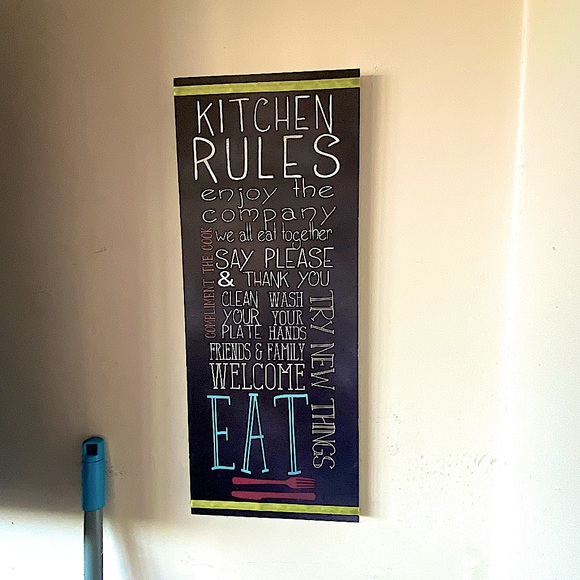 KITCHEN
RULES
enjoy the
company
we all eat together
COMPLIMENT THE COOK
SAY PLEASE
& THANK YOU
CLEAN YOUR PLATE
WASH YOUR HANDS
TRY NEW THINGS
FRIENDS & FAMILY
WELCOME
EAT